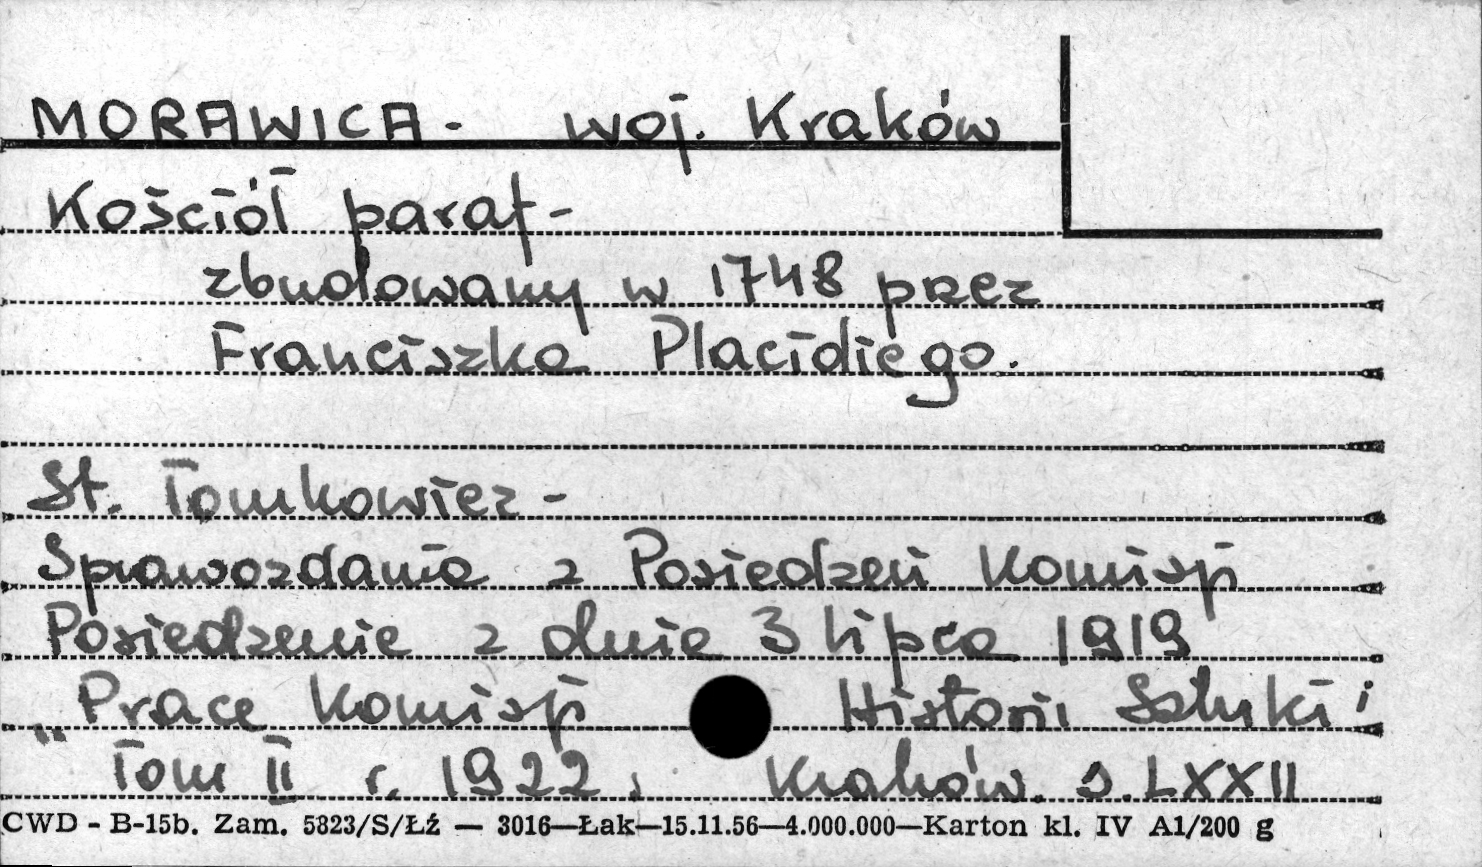 MORAWICA - woj. Kraków
Kościół paraf-
zbudowany w 1748 przez
Franciszka Placidiego.
St. Tomkowicz -
Sprawozdania z Posiedzeń Komisji
Posiedzenie z dnia 3 lipca 1919
„Prace Komisji Historii Sztuki"
Tom II r. 1922, Kraków. s. LXXII
CWD - B-15b. Zam. 5823/S/Łź — 3016—Łak—15.11.56—4.000.000—Karton kl. IV A1/200 g